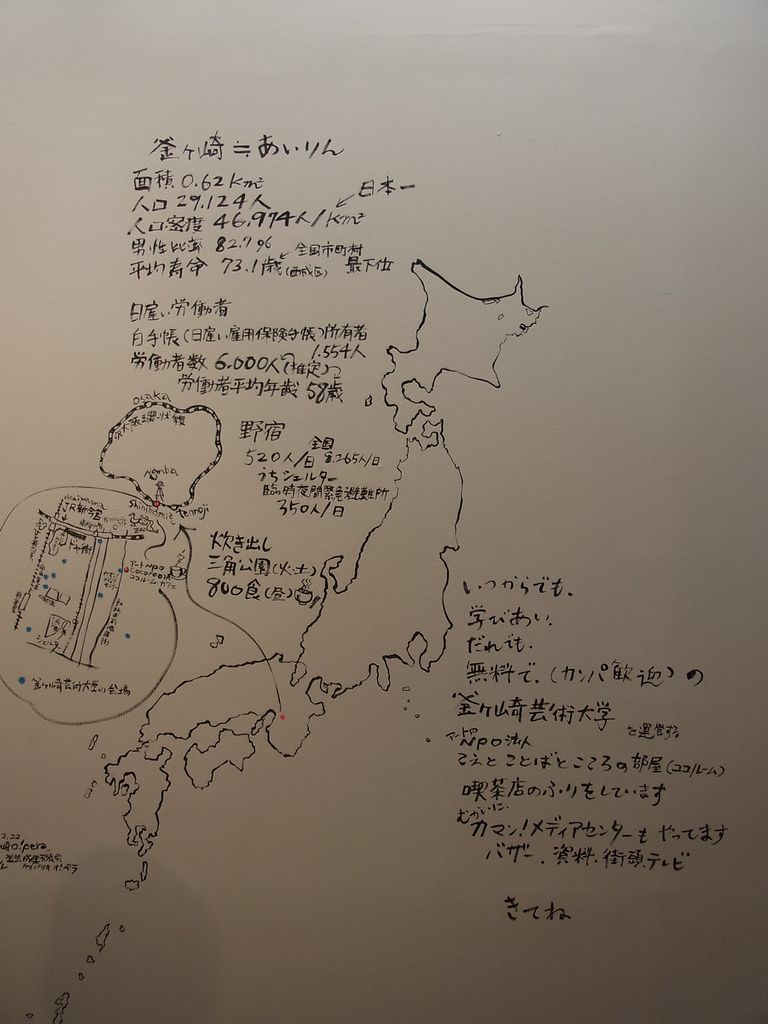 釜ヶ崎≒あいりん
面積 0.62 Km²
人口 29.124人
日本一
人口密度 46,974人/Km²
男性比率 82.7%
全国市町村
平均寿命 73.1歳(西成区) 最下位
日雇い労働者
白手帳(日雇い雇用保険手帳)所有者
1.554人
労働者数 6.000人(推定)
労働者平均年齢 58歳
野宿
全国
520人/日 8.265人/日
うちシェルター
臨時夜間緊急避難所
350人/日
炊き出し
三角公園(火・土)
800食(昼)
osaka
JR大阪環状線
namba
Shinimamiya
tennoji
JR新今宮
アートNPO
cocoroom
ココルーム・カフェ
シェルター
釜ヶ崎芸術大学の会場
いつからでも、
学びあい、
だれでも、
無料で、(カンパ歓迎)の
釜ヶ崎芸術大学
を運営する
アートNPO法人
こえとことばとこころの部屋(ココルーム)
喫茶店のふりをしています
むかいに、
カマン!メディアセンターもやってます
バザー、資料、街頭テレビ
きてね
2.22
o!pera